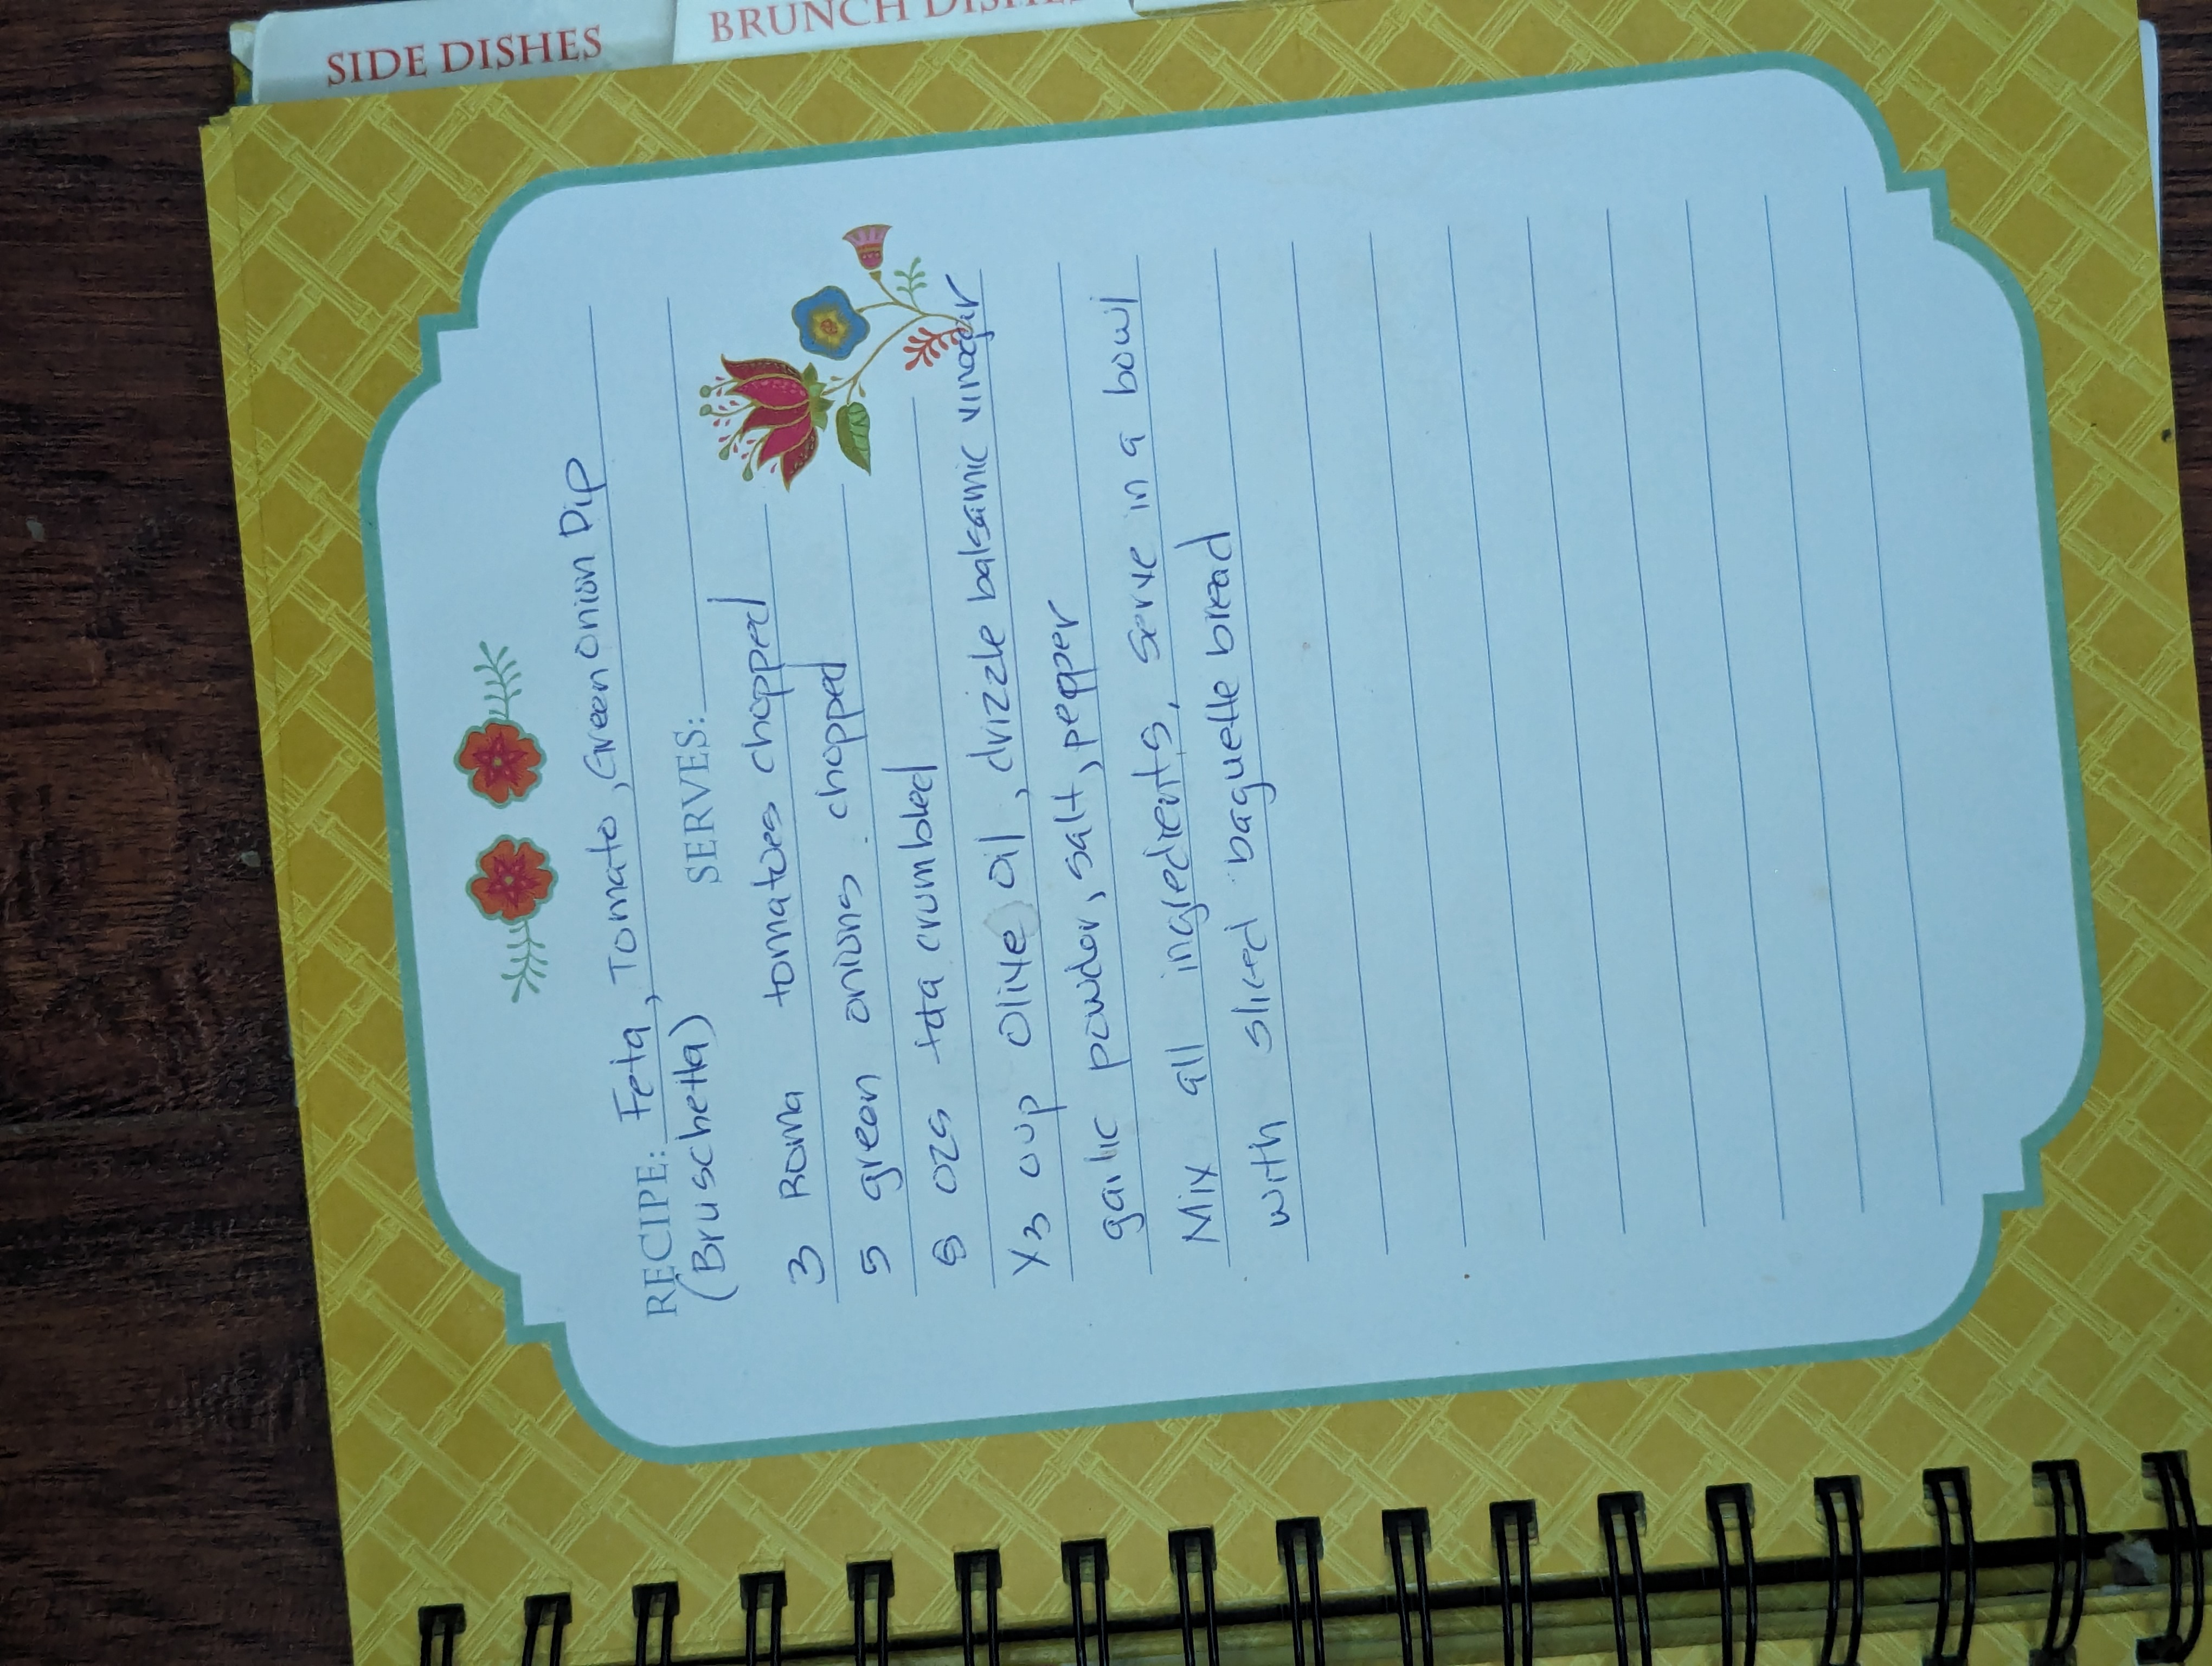 SIDE DISHES
BRUNCH DISHES
RECIPE: Feta, Tomato, Green onion Dip
(Bruschetta) SERVES:
3 Roma tomatoes chopped
5 green onions chopped
8 ozs feta crumbled
1/3 cup Olive oil, drizzle balsamic vinegar
garlic powder, salt, pepper
Mix all ingredients, serve in a bowl
with sliced baguette bread